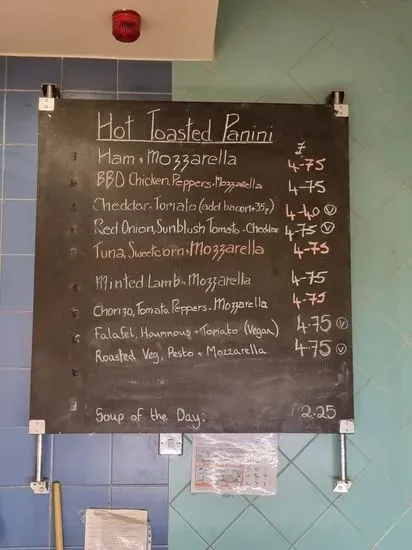 Hot Toasted Panini
£
Ham + Mozzarella 4-75
BBQ Chicken, Peppers + Mozzarella 4-75
Cheddar + Tomato (add bacon + 35p) 4-40 V
Red Onion, Sunblush Tomato + Cheddar 4-75 V
Tuna, Sweetcorn + Mozzarella 4-75
Minted Lamb + Mozzarella 4-75
Chorizo, Tomato, Peppers + Mozzarella 4-75
Falafel, Hoummous + Tomato (Vegan) 4.75 V
Roasted Veg, Pesto + Mozzarella 4.75 V
Soup of the Day. 2.25